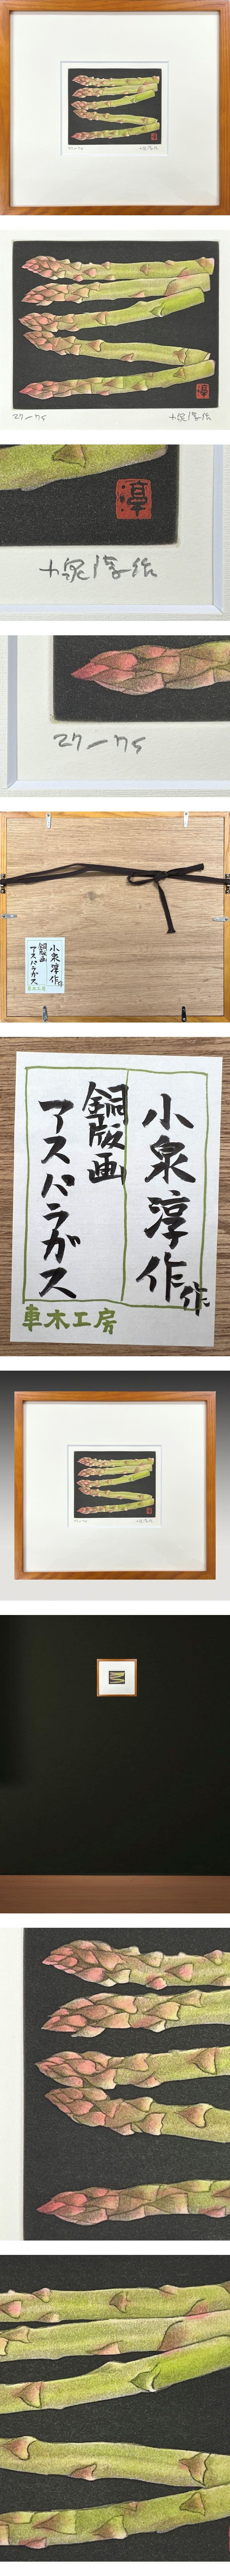 27-75
小泉淳作
淳
小泉淳作
27-75
小泉淳作作
銅版画
アスパラガス
車木工房
小泉淳作作
銅版画
アスパラガス
車木工房